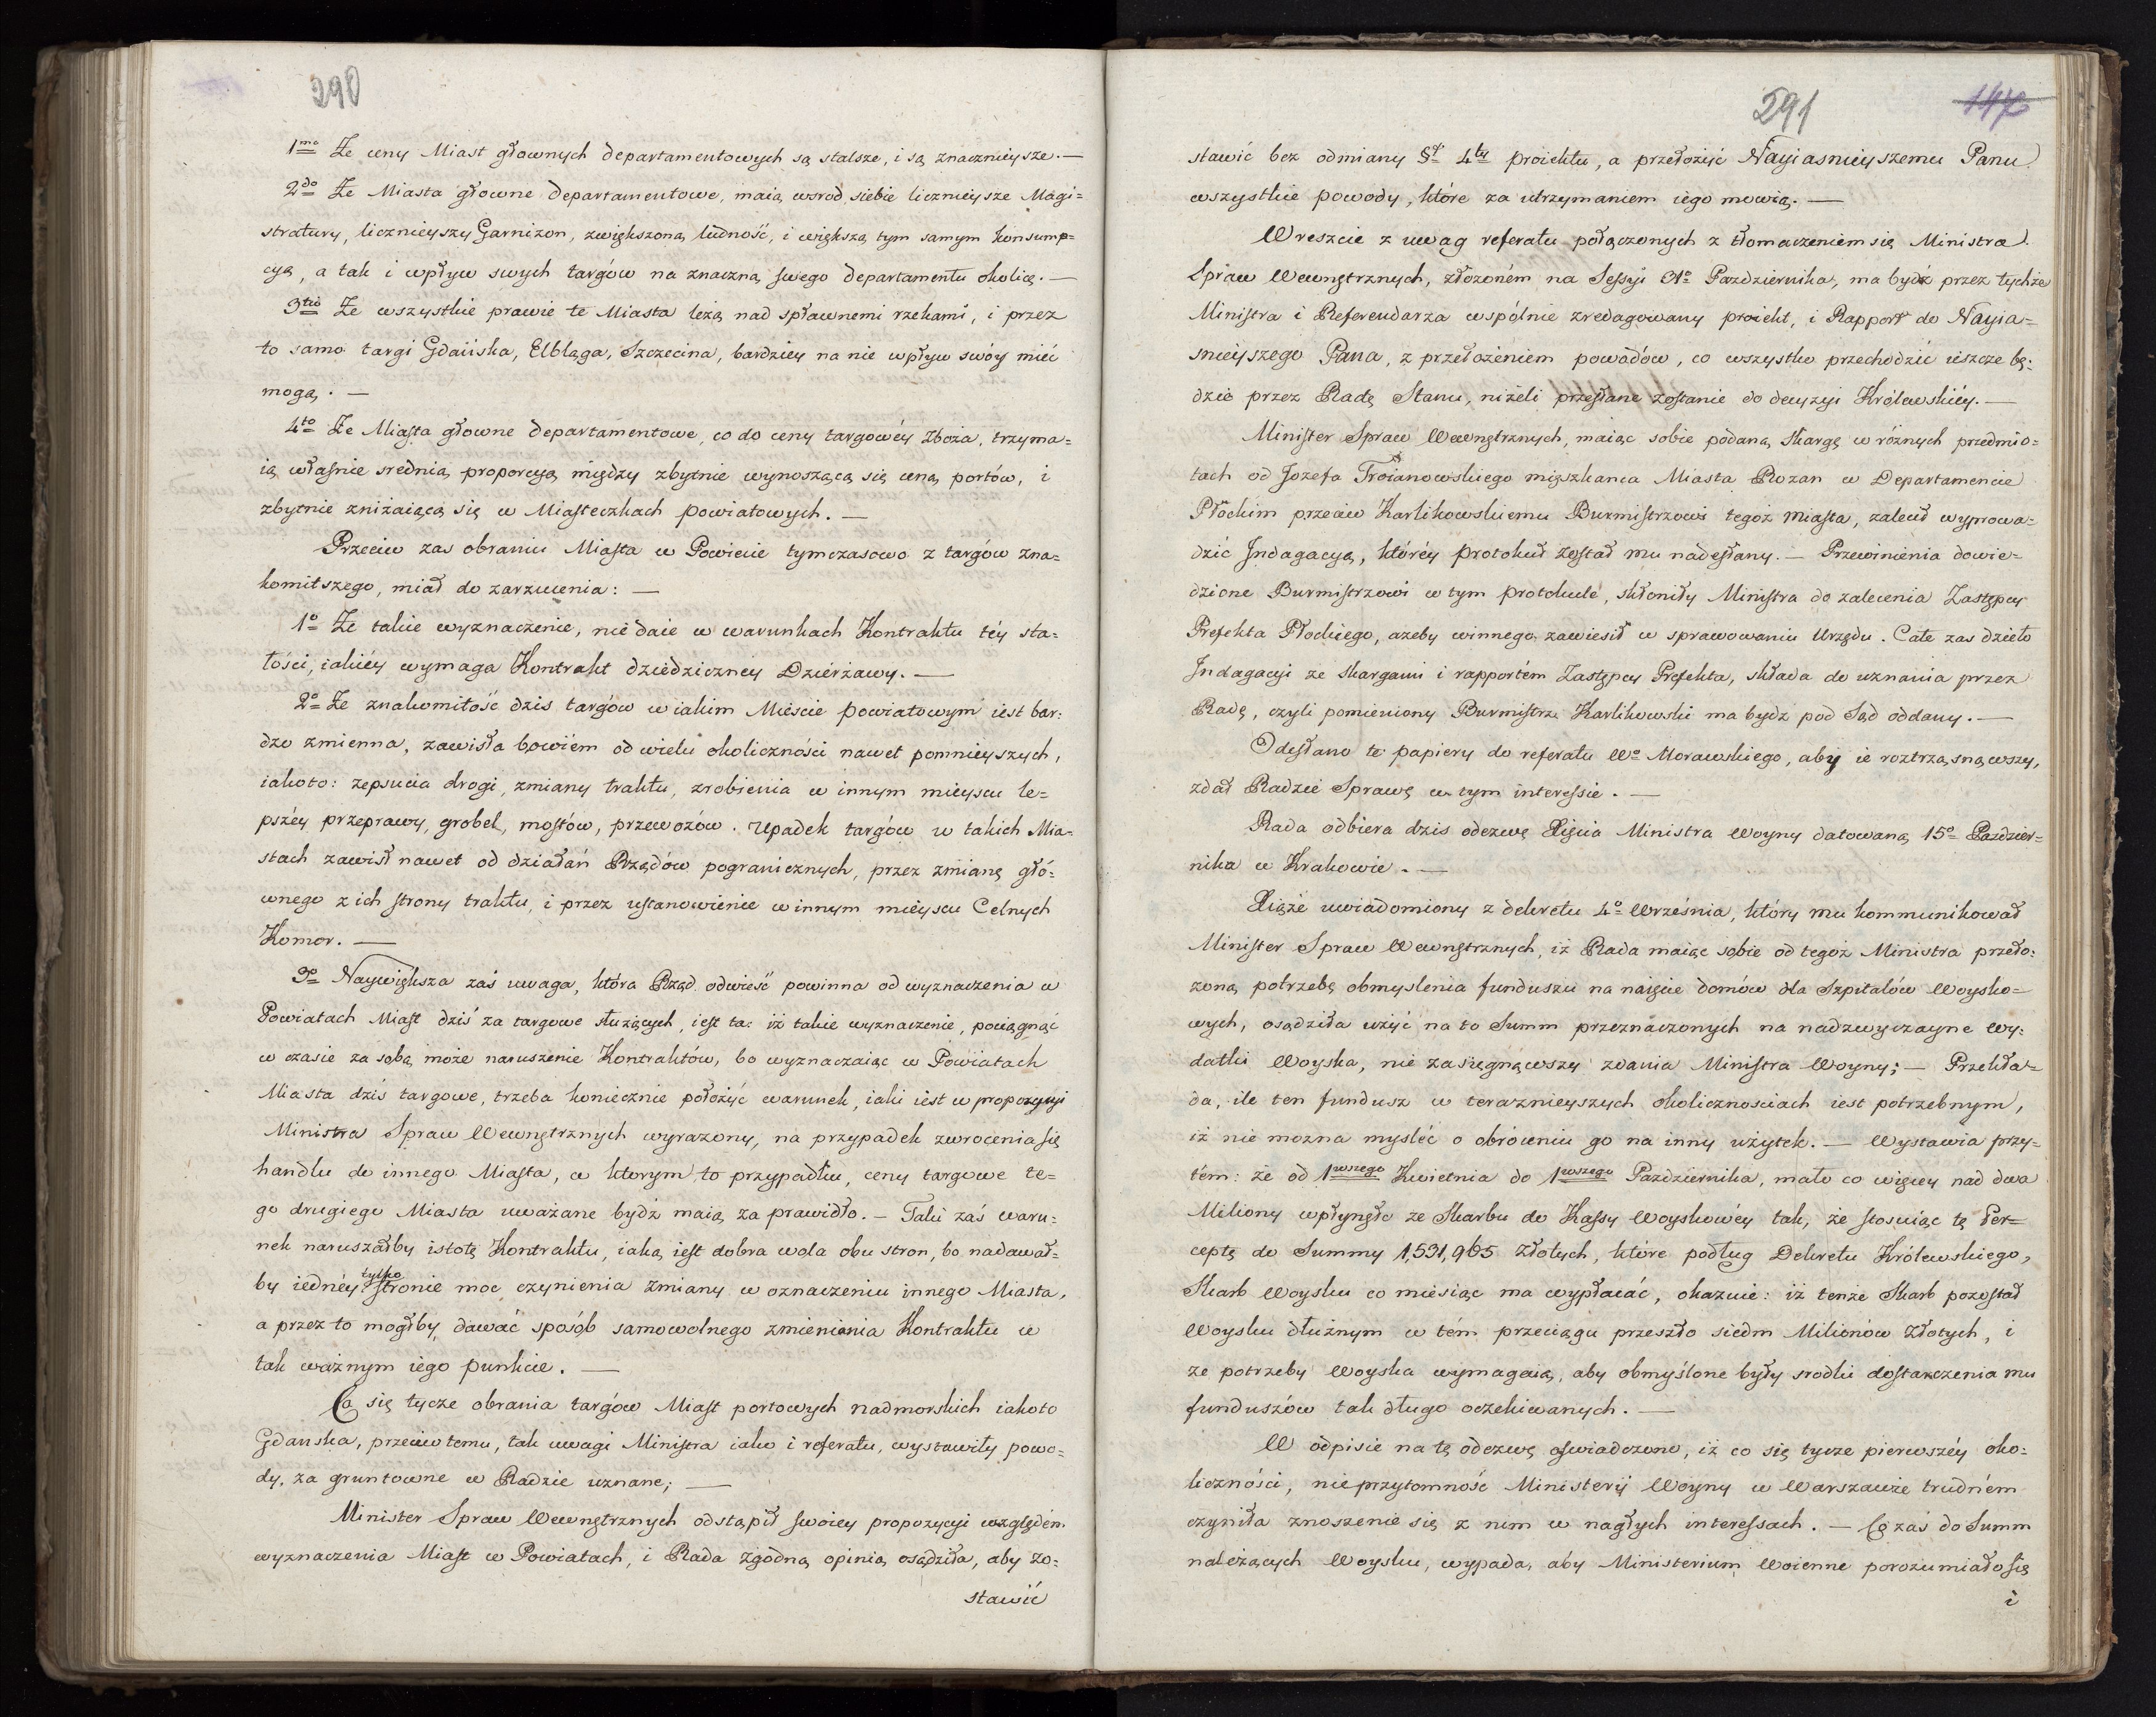 290
1mo Że ceny Miast głownych departamentowych są stalsze, i są znacznieysze. —
2do Że Miasta głowne departamentowe, maią wsrod siebie licznieysze Magi=
stratury, licznieyszy Garnizon, zwiększoną ludność, i większą tym samym konsump=
cyą, a tak i wpływ swych targów na znaczną swego departamentu okolicę. —
3tio Że wszystkie prawie te Miasta leżą nad spławnemi rzekami, i przez
to samo targi Gdańska, Elbląga, Szczecina, bardziey na nie wpływ swóy mieć
mogą. —
4to Że Miasta głowne departamentowe, co do ceny targowéy zboża, trzyma=
ią właśnie srednią proporcyą między zbytnie wynoszącą się ceną portów, i
zbytnie zniżaiącą się w Miasteczkach powiatowych. —
Przeciw zas obraniu Miasta w Powiecie tymczasowo z targów zna=
komitszego, miał do zarzucenia: —
1o Że takie wyznaczenie, nie daie w warunkach Kontraktu téy sta=
łości, iakiéy wymaga Kontrakt dziedziczney Dzierżawy. —
2o Że znakomitość dzis targów w iakim Mieście powiatowym iest bar=
dzo zmienna, zawisła bowiem od wielu okoliczności nawet pomnieyszych,
iakoto: zepsucia drogi, zmiany traktu, zrobienia w innym mieyscu le=
pszéy przeprawy, grobel, mostów, przewozów. Upadek targów w takich Mia=
stach zawisł nawet od działań Rządów pogranicznych, przez zmianę głó=
wnego z ich strony traktu, i przez ustanowienie w innym mieyscu Celnych
Komor. —
3o Naywiększa zaś uwaga, która Rząd odwieść powinna od wyznaczenia w
Powiatach Miast dziś za targowe służących, iest ta: iż takie wyznaczenie, pociągnąć
w czasie za sobą może naruszenie Kontraktów, bo wyznaczaiąc w Powiatach
Miasta dziś targowe, trzeba koniecznie położyć warunek, iaki iest w propozycyi
Ministra Spraw Wewnętrznych wyrażony, na przypadek zwrocenia się
handlu do innego Miasta, w ktorym to przypadku, ceny targowe te=
go drugiego Miasta uważane bydź maią za prawidło. — Taki zaś waru=
nek naruszałby istotę Kontraktu, iaką iest dobra wola obu stron, bo nadawał=
by iednéy tylko stronie moc czynienia zmiany w oznaczeniu innego Miasta,
a przez to mogłby dawać sposób samowolnego zmieniania Kontraktu w
tak ważnym iego punkcie. —
Co się tycze obrania targów Miast portowych nadmorskich iakoto
Gdanska, przeciw temu, tak uwagi Ministra iako i referatu, wystawiły powo=
dy, za gruntowne w Radzie uznane; —
Minister Spraw Wewnętrznych odstąpił swoiey propozycyi względem
wyznaczenia Miast w Powiatach, i Rada zgodną opinią osądziła, aby zo=
stawić
291
147
stawić bez odmiany §f 4ty proiektu, a przełożyć Nayiasnieyszemu Panu
wszystkie powody, które za utrzymaniem iego mowią. —
Wreszcie z uwag referatu połączonych z tłomaczeniem się Ministra
Spraw Wewnętrznych, złożoném na Sessyi 31o Pazdziernika, ma bydź przez tychże
Ministra i Referendarza wspólnie zredagowany proiekt, i Rapport do Nayia=
snieyszego Pana, z przełożeniem powodów, co wszystko przechodzić ieszcze bę=
dzie przez Radę Stanu, niżeli przesłane zostanie do decyzyi Królewskiéy. —
Minister Spraw Wewnętrznych, maiąc sobie podaną skargę w różnych przedmio=
tach od Jozefa Troianowskiego mieszkanca Miasta Rozan w Departamencie
Płockim przeciw Karlikowskiemu Burmistrzowi tegoż Miasta, zalecił wyprowa=
dzić Jndagacyą, któréy protokuł został mu nadesłany. — Przewinienia dowie=
dzione Burmistrzowi w tym protokule, skłoniły Ministra do zalecenia Zastępcy
Prefekta Płockiego, ażeby winnego zawiesił w sprawowaniu Urzędu. Całe zas dzieło
Jndagacyi ze skargami i rapportem Zastępcy Prefekta, składa do uznania przez
Radę, czyli pomieniony Burmistrz Karlikowski ma bydz pod Sąd oddany. —
Odesłano te papiery do referatu Wo Morawskiego, aby ie roztrząsnąwszy,
zdał Radzie Sprawę w tym interessie. —
Rada odbiera dzis odezwę Xięcia Ministra Woyny datowaną 15o Pazdzier=
nika w Krakowie. —
Xiąże uwiadomiony z dekretu 4o Września, który mu kommunikował
Minister Spraw Wewnętrznych, iż Rada maiąc sobie od tegoż Ministra przeło=
żoną potrzebę obmyslenia funduszu na naięcie domów dla Szpitalów Woysko=
wych, osądziła użyć na to Summ przeznaczonych na nadzwyczayne Wy=
datki Woyska, nie zasięgnąwszy zdania Ministra Woyny; — Przekła=
da, ile ten fundusz w teraznieyszych okolicznosciach iest potrzebnym,
iż nie można mysléć o obróceniu go na inny użytek. — Wystawia przy=
tém: że od 1wszego Kwietnia do 1wszego Pazdziernika, mało co więcey nad dwa
Miliony wpłynęło ze Skarbu do Kassy Woyskowéy tak, że stosuiąc tę Per=
ceptę do Summy 1,531,965 Złotych, które podług Dekretu Królewskiego,
Skarb Woysku co miesiąc ma wypłacać, okazuie: iż tenże Skarb pozostał
Woysku dłużnym w tém przeciągu przeszło siedm Milionów Złotych, i
ze potrzeby Woyska wymagaią, aby obmyślone były srodki dostarczenia mu
funduszów tak długo oczekiwanych. —
W odpisie na tę odezwę oswiadczono, iż co się tycze pierwszéy oko=
liczności, nieprzytomność Ministerij Woyny w Warszawie trudném
czyniła znoszenie się z nim w nagłych interessach. — Co zaś do Summ
należących Woysku, wypada, aby Ministerium Woienne porozumiało się
i